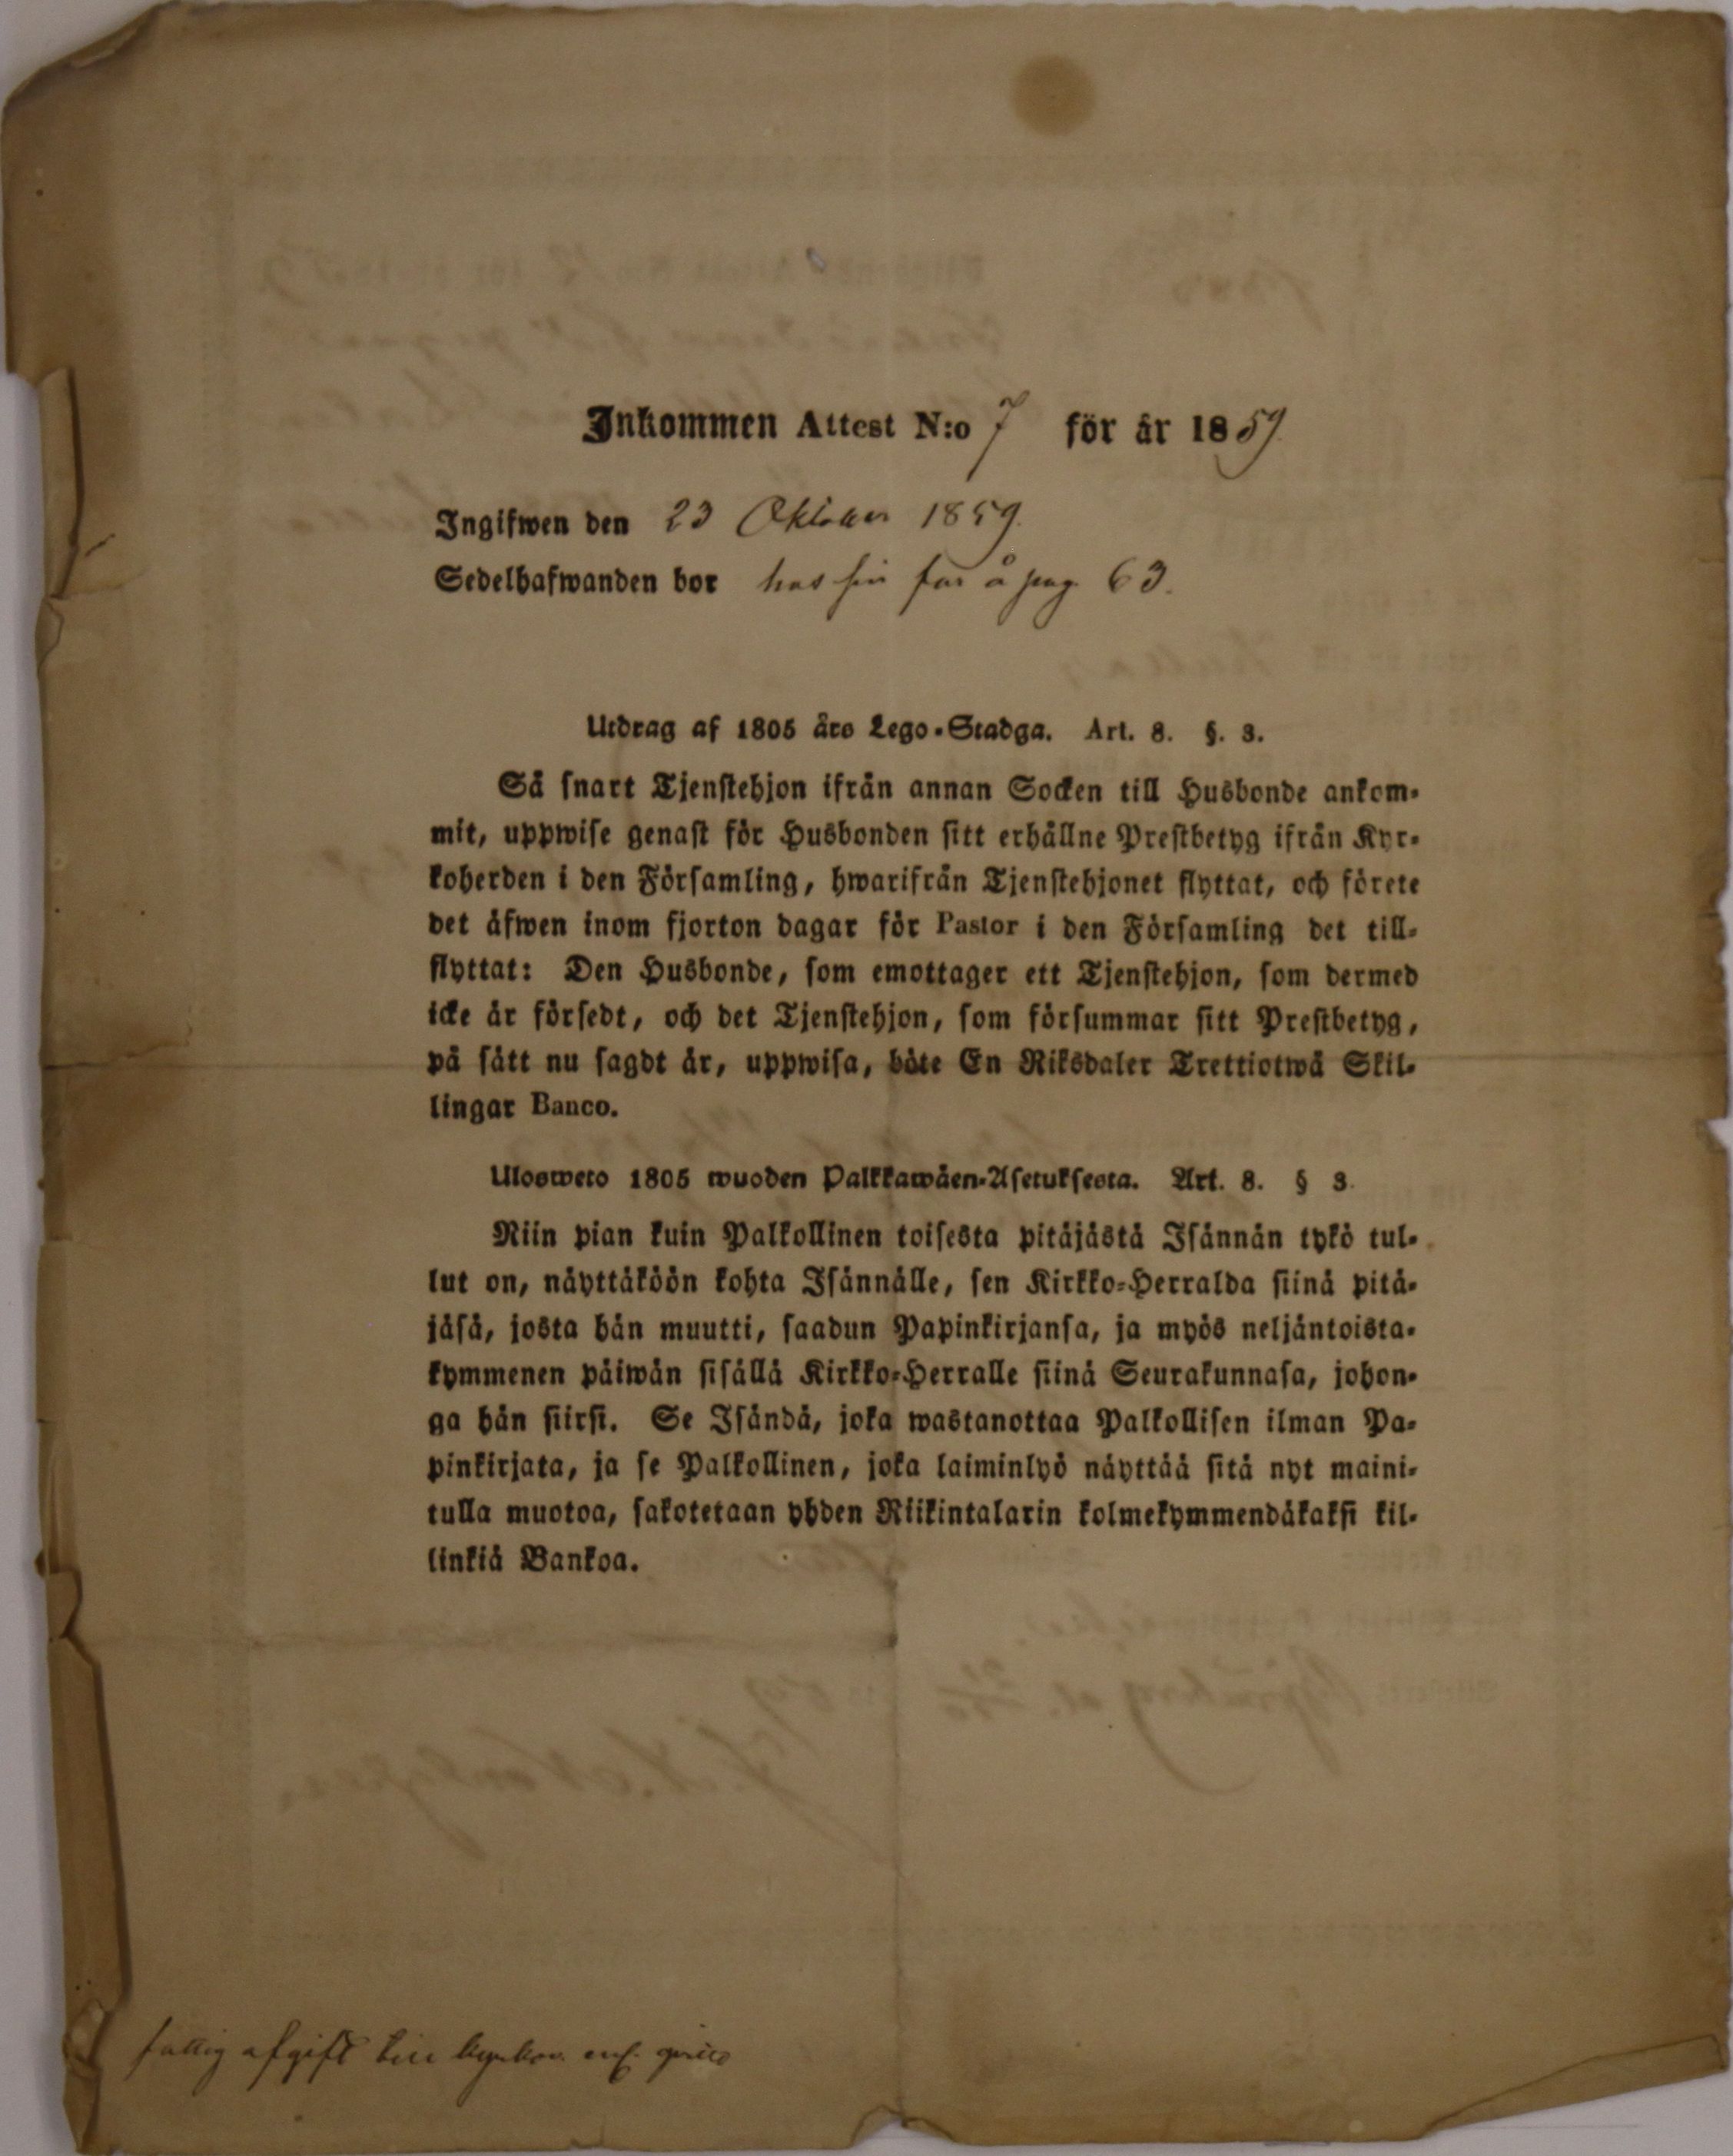 Inkommen Attest N:o 7 för år 1859
Ingifwen den 23 Oktober 1859.
Sedelhafwanden bor hos sin far å pag. 63.
Utdrag af 1805 års Lego-Stadga. Art. 8. §. 3.
Så snart Tjenstehjon ifrån annan Socken till Husbonde ankom-
mit, uppwise genast för Husbonden sitt erhållne Prestbetyg ifrån Kyr-
koherden i den Församling, hwarifrån Tjenstehjonet flyttat, och förete
det äfwen inom fjorton dagar för Pastor i den Församling det till-
flyttat: Den Husbonde, som emottager ett Tjenstehjon, som dermed
icke är försedt, och det Tjenstehjon, som försummar sitt Prestbetyg,
på sätt nu sagdt är, uppwisa, böte En Riksdaler Trettiotwå Skil-
lingar Banco.
Ulosweto 1805 wuoden Palkkawäen-Asetuksesta. Art. 8. § 3.
Niin pian kuin Palkollinen toisesta pitäjästä Isännän tykö tul-
lut on, näyttäköön kohta Isännälle, sen Kirkko-Herralda siinä pitä-
jäsä, josta hän muutti, saadun Papinkirjansa, ja myös neljäntoista-
kymmenen päiwän sisällä Kirkko-Herralle siinä Seurakunnasa, johon-
ga hän siirsi. Se Isändä, joka wastanottaa Palkollisen ilman Pa-
pinkirjata, ja se Palkollinen, joka laiminlyö näyttää sitä nyt maini-
tulla muotoa, sakotetaan yhden Riikintalarin kolmekymmendäkaksi kil-
linkiä Bankoa.
fattig afgift till kyrkov. enl. qvitto